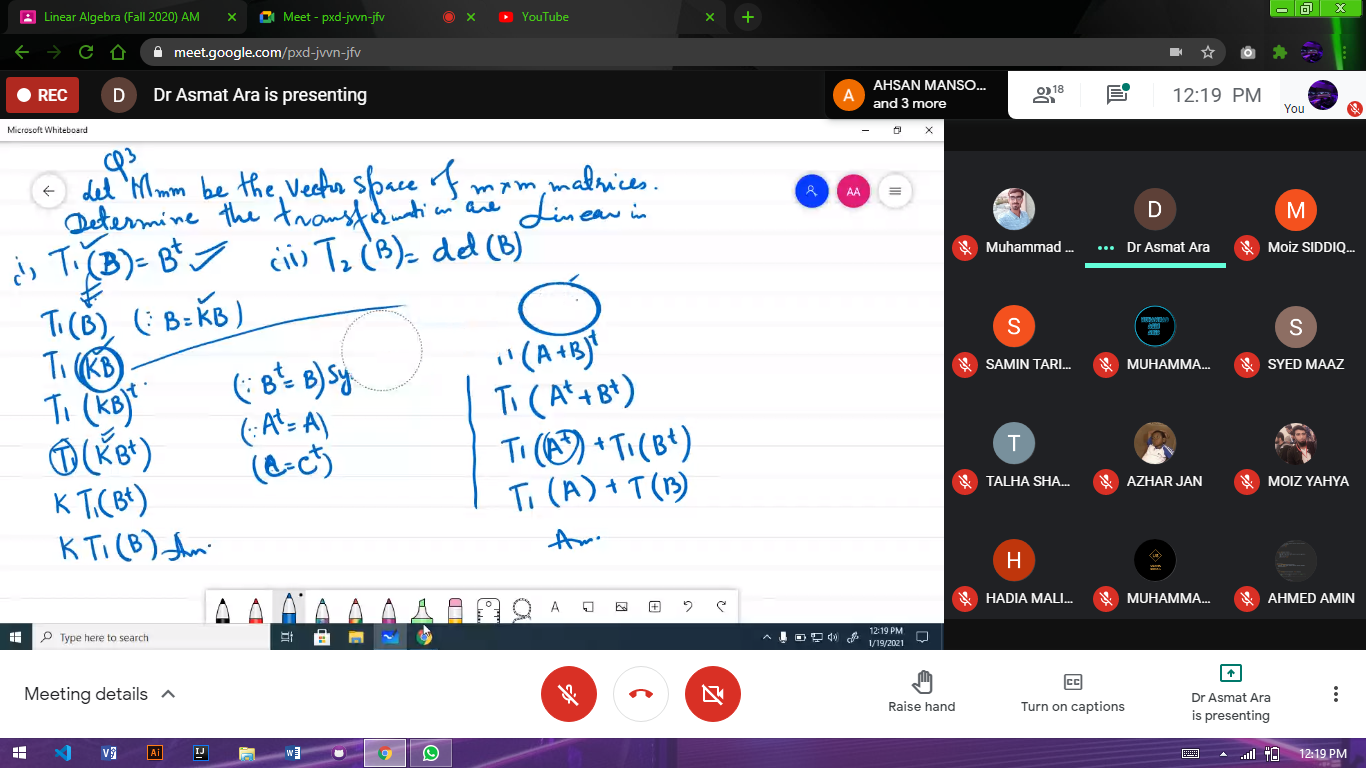 Linear Algebra (Fall 2020) AM
Meet - pxd-jvvn-jfv
YouTube
meet.google.com/pxd-jvvn-jfv
REC
D
Dr Asmat Ara is presenting
A
AHSAN MANSO...
and 3 more
18
12:19 PM
You
Microsoft Whiteboard
AA
Q3
let Mmm be the vector space of m×m matrices.
Determine the transformation are Linear in
i, T₁(B) = Bᵗ (ii) T₂(B) = det(B)
T₁(B) (∵ B = KB)
T₁(KB)
T₁(KB)ᵗ
T₁(KBᵗ)
K T₁(Bᵗ)
K T₁(B) Ans.
(∵ Bᵗ = B) Sy
(∵ Aᵗ = A)
(C = Cᵗ)
(A+B)ᵗ
T₁(Aᵗ + Bᵗ)
T₁(Aᵗ) + T₁(Bᵗ)
T₁(A) + T(B)
Ans.
Type here to search
12:19 PM
1/19/2021
Muhammad ...
D
Dr Asmat Ara
M
Moiz SIDDIQ...
S
SAMIN TARI...
MUHAMMA...
S
SYED MAAZ
T
TALHA SHA...
AZHAR JAN
MOIZ YAHYA
H
HADIA MALI...
MUHAMMA...
AHMED AMIN
Meeting details
Raise hand
CC
Turn on captions
Dr Asmat Ara
is presenting
Ai
IJ
12:19 PM